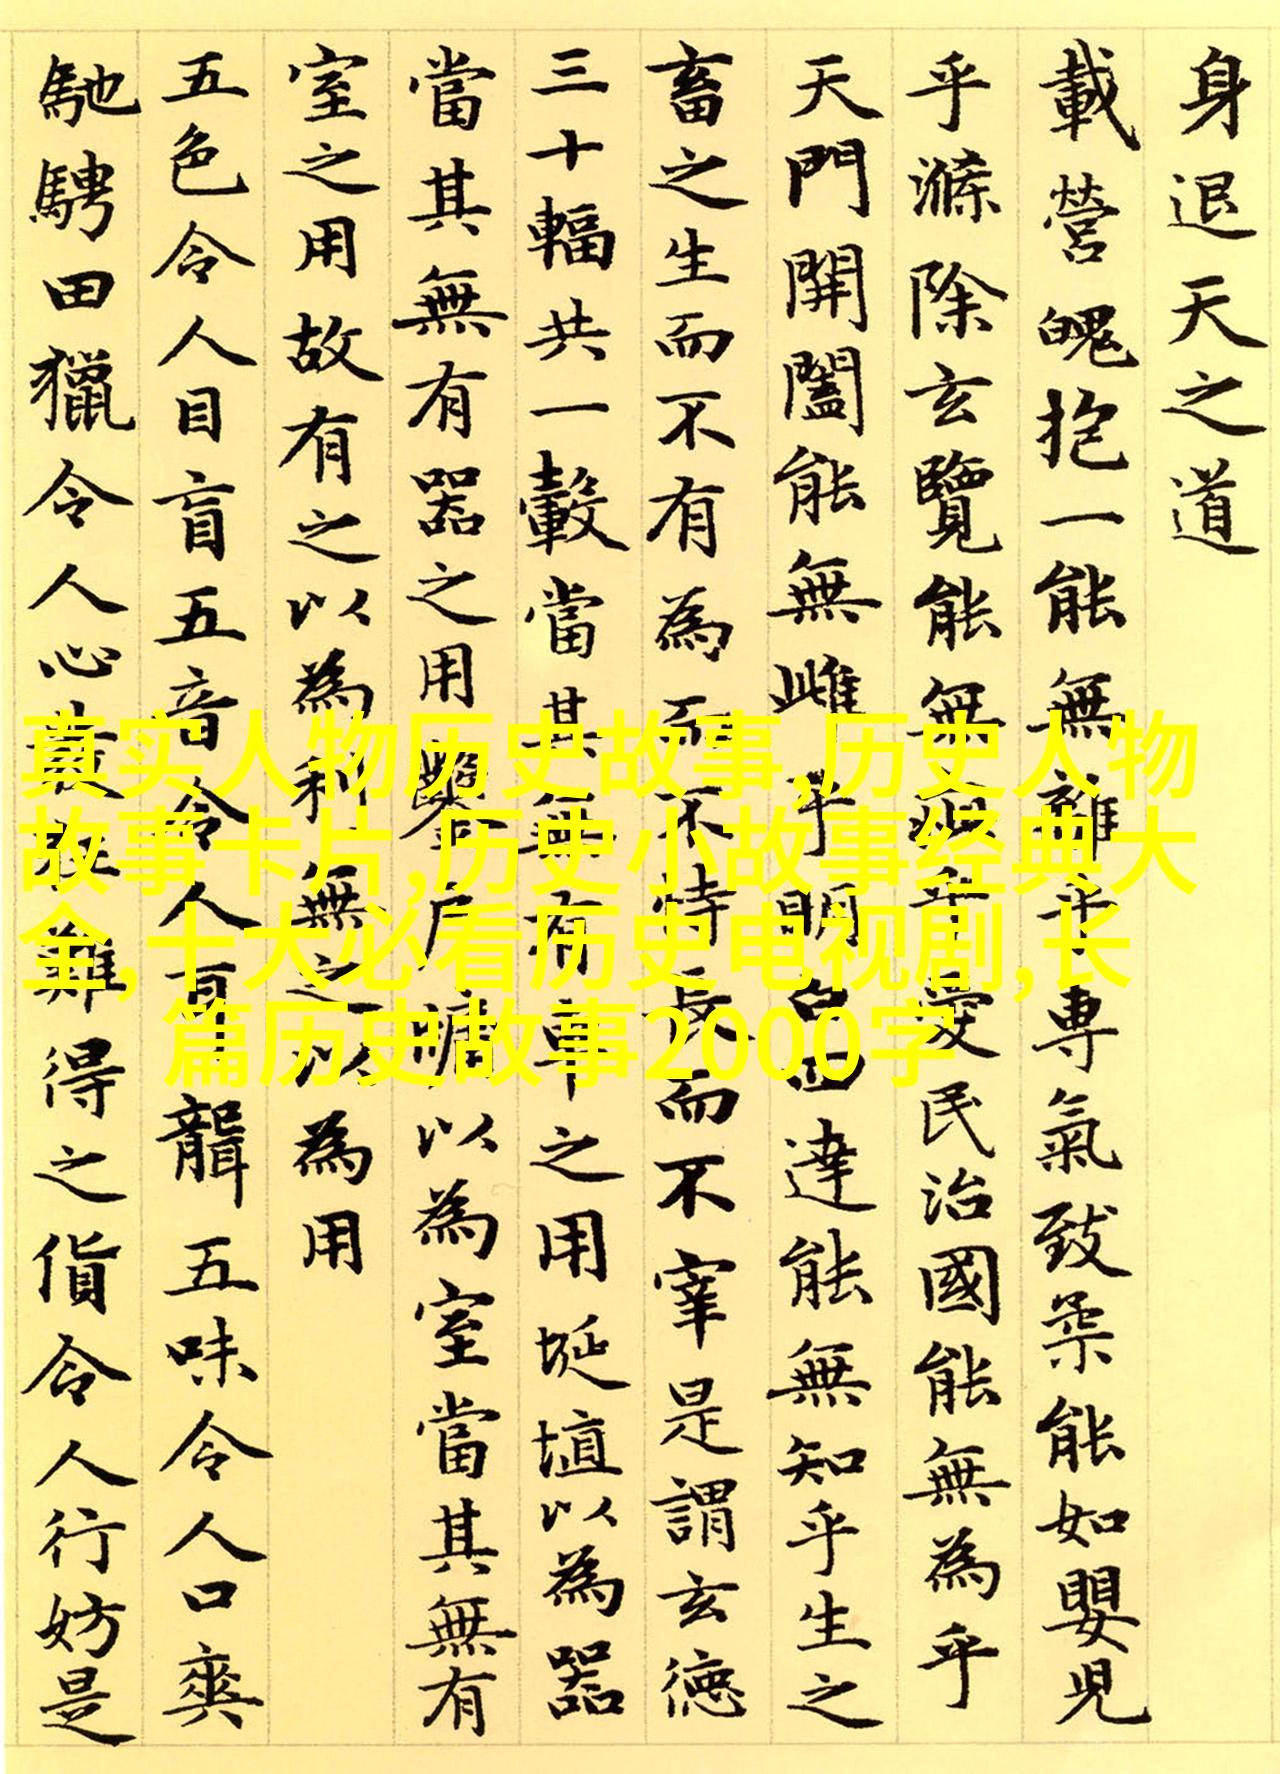 身退天之道
載營魄抱一能無離乎專氣致柔能如嬰児
乎滌除玄覽能無疵乎愛民治國能無為乎
天門開闔能無雌乎明白四達能無知乎生之
畜之生而不有為而不恃長而不宰是謂玄德
三十輻共一轂當其無有車之用埏埴以為器
當其無有器之用鑿戶牖以為室當其無有
室之用故有之以為利無之以為用
五色令人目盲五音令人耳聾五味令人口爽
馳騁田獵令人心發狂難得之貨令人行妨是
真实人物历史故事,历史人物
故事卡片,历史小故事经典大
全,十大必看历史电视剧,长
篇历史故事2000字